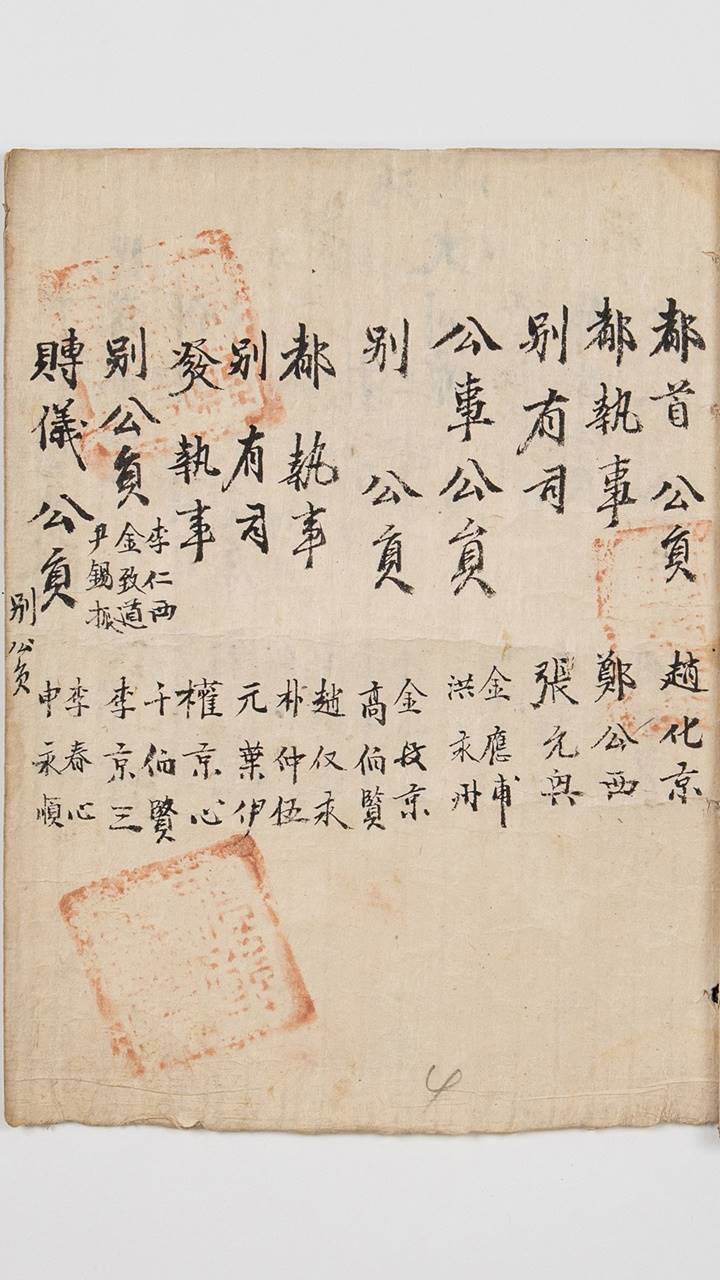 都首公員 趙化京
都執事 鄭公西
別有司 張允興
公事公員 金應甫
洪永州
別公員 金 京
高伯賢
都執事 趙仅永
朴仲伍
別有司 元葉伊
發執事 權京心
千伯賢
別公員 李仁西
金致道
尹錫振
李京三
賻儀公員 李春心
申永順
別公員
4